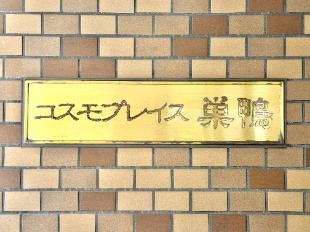 コスモプレイス 巣鴨